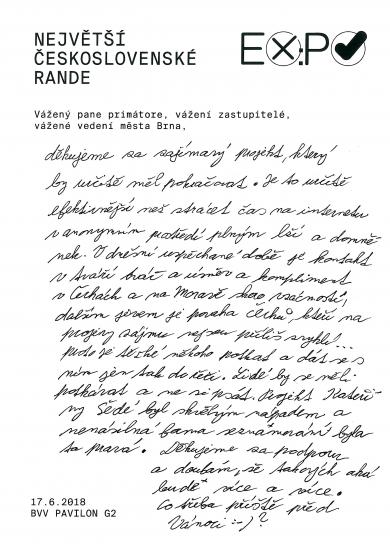 NEJVĚTŠÍ
ČESKOSLOVENSKÉ
RANDE
EX:PO
Vážený pane primátore, vážení zastupitelé,
vážené vedení města Brna,
děkujeme za zajímavý projekt, který
by určitě měl pokračovat. Je to určitě
efektivnější než ztrácet čas na internetu
v anonymním prostředí plným lží a domně
nek. V dnešní uspěchané době je kontakt
v tváří tvář a úsměv a kompliment
v Čechách a na Moravě skoro vzácností,
dalším jevem je povaha Čechů kteří na
projevy zájmu nejsou příliš zvyklí...
proto je těžké někoho potkat a dát se s
ním jen tak do řeči. Lidé by se měli
potkávat a ne si psát. Projekt Kateři
ny Šedé byl skvělým nápadem a
nenásilná forma seznamování byla
ta pravá. Děkujeme za podporu
a doufám, že takových akcí
bude více a více.
Co třeba příště před
Vánoci :-)?
17.6.2018
BVV PAVILON G2